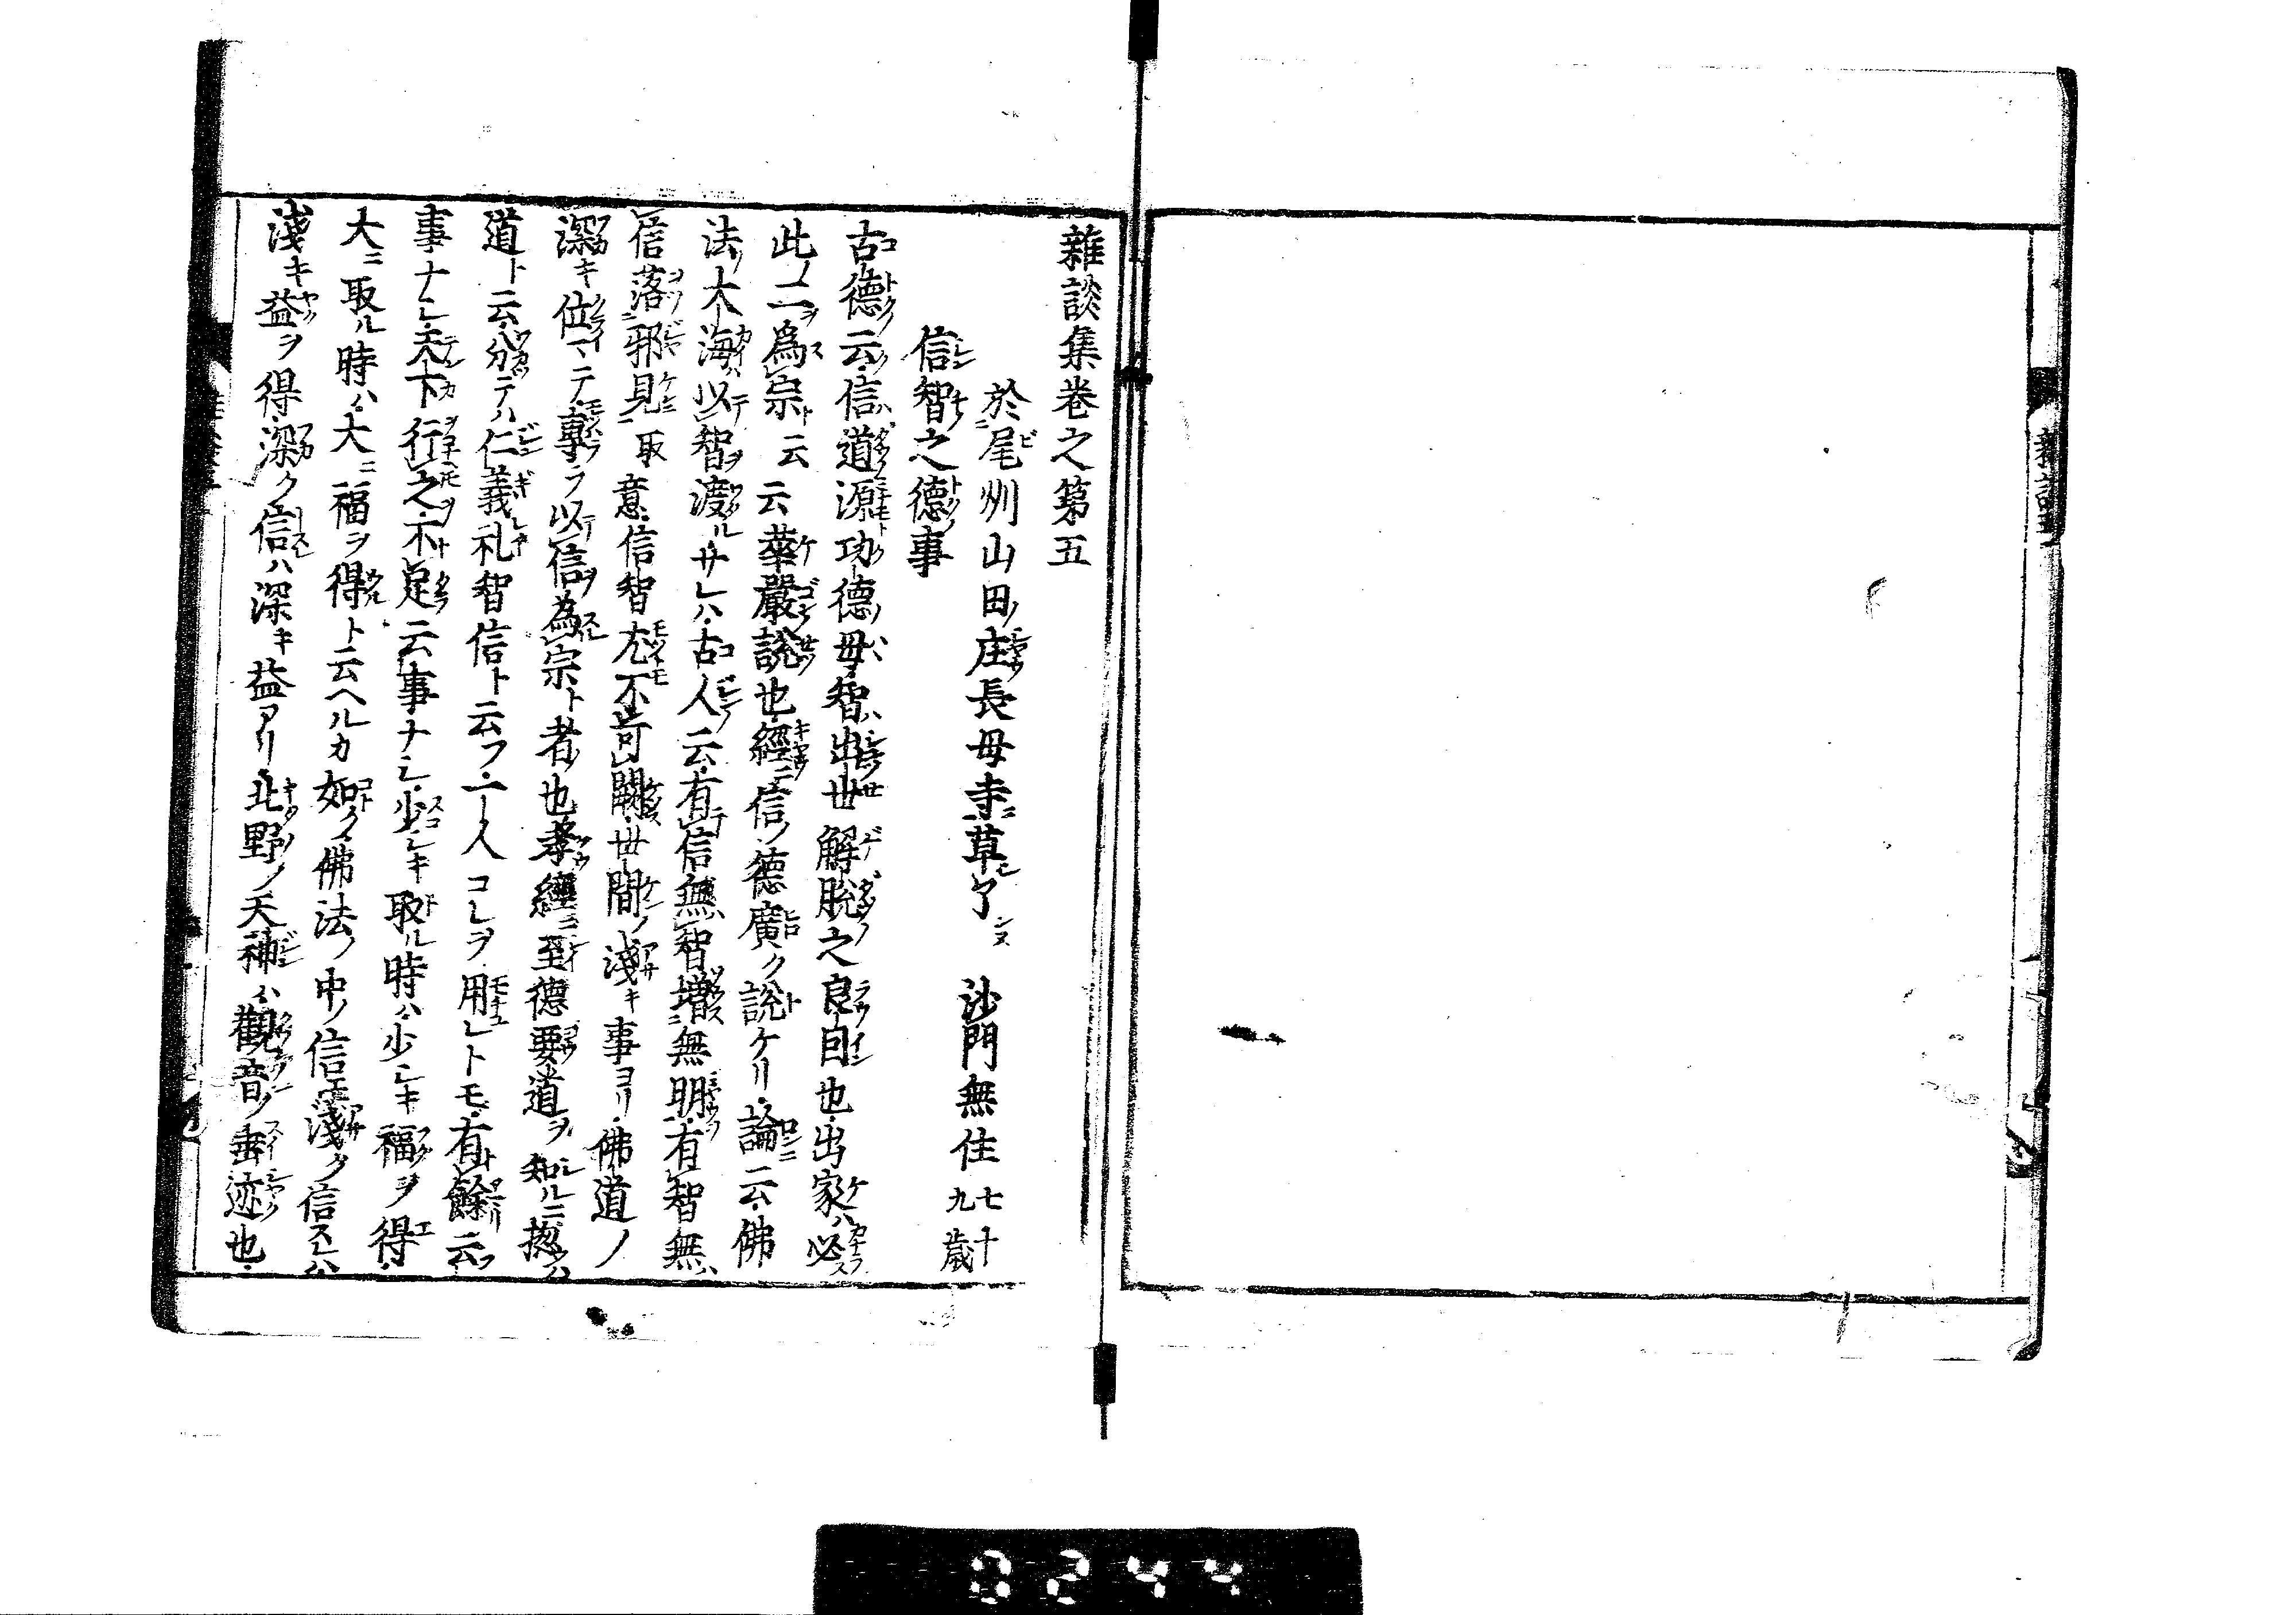 雜談集卷之第五
於尾州山田ノ庄長母寺ニ草シ了ンヌ 沙門無住 七十九歳
信智之德事
古德云ク信ハ道ノ源功德ノ母智ハ出世解脱之良因也出家ハ必ス
此ノ二ヲ爲宗ト云云華嚴ノ説也經ニ信ノ德廣ク説ケリ論ニ云佛
法ノ大海ハ以テ智ヲ渡ルサレハ古人ノ云有テ信無ハ智増ス無明ヲ有智無ハ
信落ツ邪見ニ取意信智尤モ不可闕世間ノ淺キ事ヨリ佛道ノ
深キ位マテ事ラ以テ信ヲ為宗ト者也孝經ニ至德要道ヲ知ルニ揔ハ
道ト云ハ分テハ仁義礼智信ト云フ一人コレヲ用レトモ有餘云フ
事ナシ天下行之ヲ不ト足云事ナシ少シキ取ル時ハ少シキ福ヲ得
大ニ取ル時ハ大ニ福ヲ得ト云ヘルカ如ク佛法ノ中ノ信モ淺ク信スレハ
淺キ益ヲ得深ク信スレハ深キ益アリ北野ノ天神ハ觀音ノ垂迹也
8244